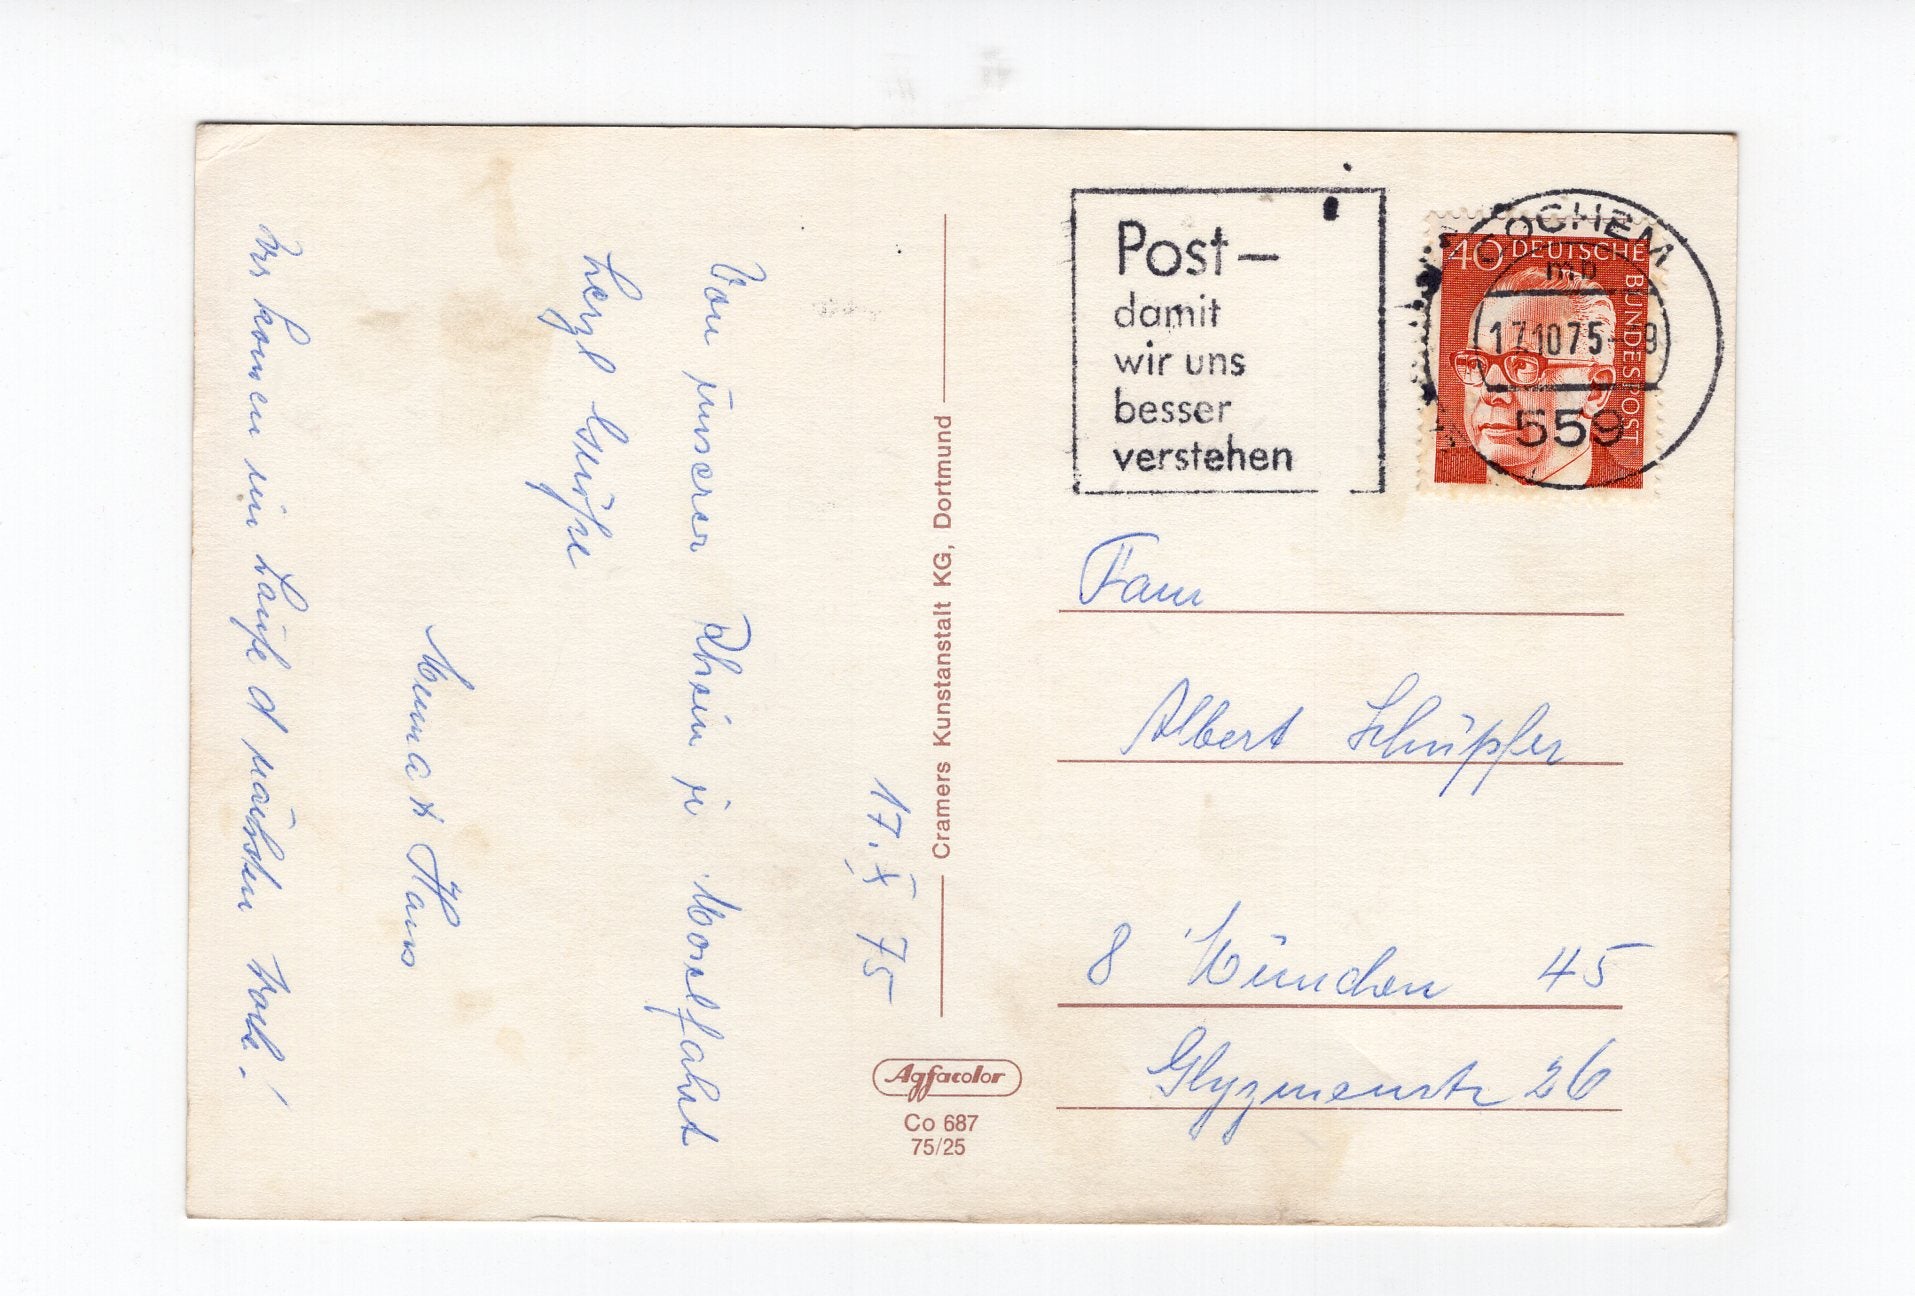 17. X 75
Von unserer Rhein u. Moselfahrt
herzl Grüße
Minna + Hans
Wir komen im Laufe d nächsten Woche!
Cramers Kunstanstalt KG, Dortmund
Agfacolor
Co 687
75/25
Post –
damit
wir uns
besser
verstehen
40 DEUTSCHE BUNDESPOST
COCHEM
17.10.75-
559
Fam
Albert Schüpfer
8 München 45
Glyzinenstr 26